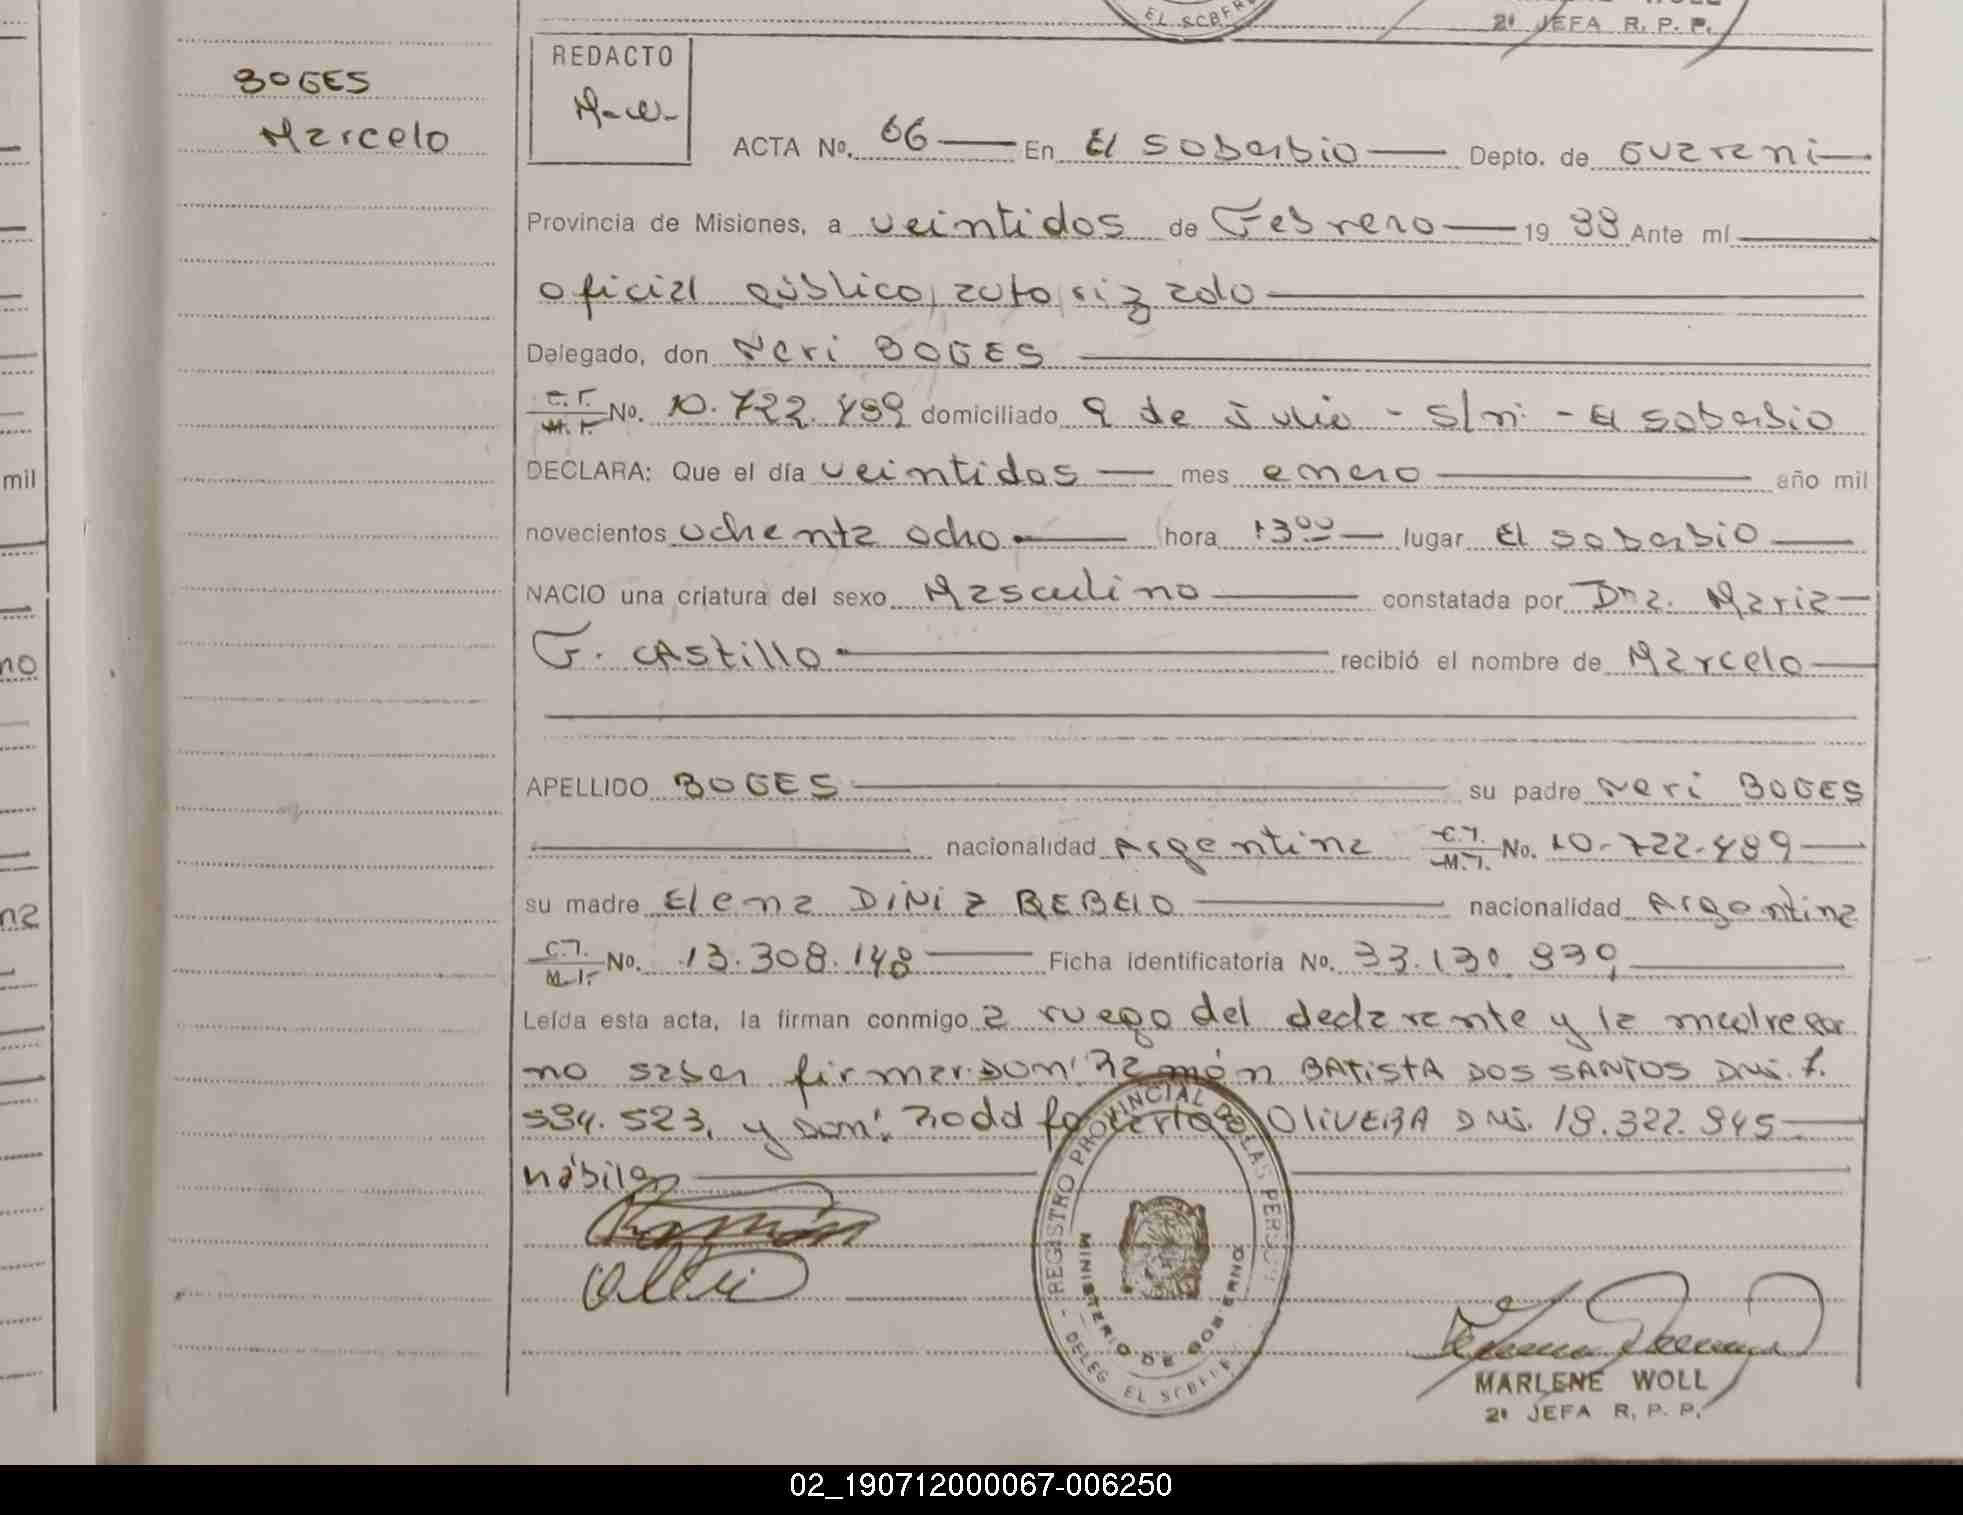 EL SOBER
2ª JEFA R. P. P.
BOGES
Marcelo
REDACTO
M-W-
ACTA No. 66 En El Soberbio Depto. de Guarani
Provincia de Misiones, a veintidos de Febrero 19 88 Ante mí
oficial público autorizado
Delegado, don Neri BOGES
C.I. M.I. No. 10.722.489 domiciliado 9 de Julio - s/n - El Soberbio
DECLARA: Que el día veintidos mes enero año mil
novecientos ochenta ocho hora 13 00 lugar El Soberbio
NACIO una criatura del sexo Masculino constatada por Dra. Maria
G. CAStillo recibió el nombre de Marcelo
APELLIDO BOGES su padre Neri BOGES
nacionalidad Argentina C.I. M.I. No. 10.722.489
su madre Elena DINIZ REBELO nacionalidad Argentina
C.I. M.I. No. 13.308.148 Ficha identificatoria No. 33.130.939
Leída esta acta, la firman conmigo a ruego del declarante y la madre por
no saber firmar don Ramón BAtistA DOS SANTOS DNI. 7.
594.523, y don OLIVERA DNI. 18.322.945
hábiles
Ramón
REGISTRO PROVINCIAL DE LAS PERSO
MINISTERIO DE GOBIERNO
DELEG. EL SOBER
MARLENE WOLL
2ª JEFA R. P. P.
mil
no
na
02_190712000067-006250